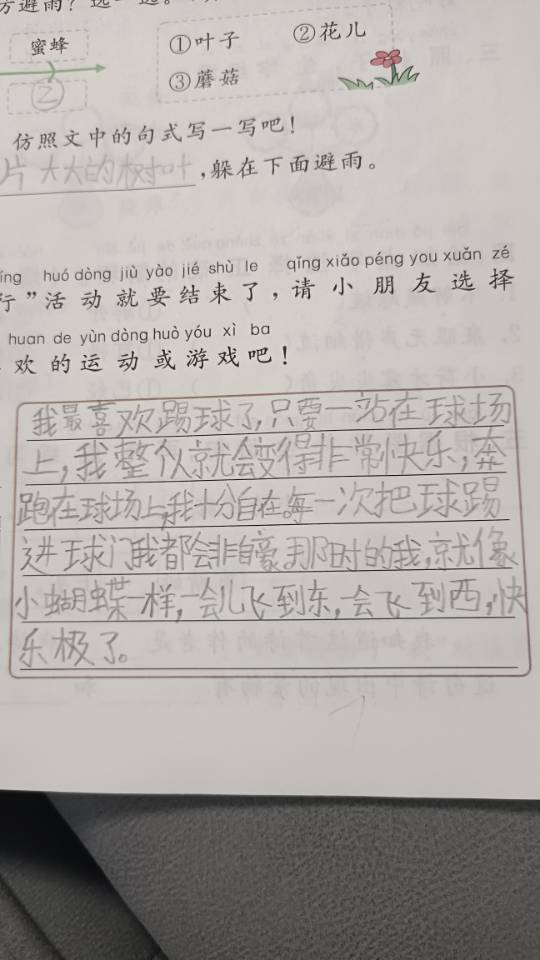 方避雨？选一选。
蜜蜂
①叶子 ②花儿
②
③蘑菇
仿照文中的句式写一写吧！
片大大的树叶，躲在下面避雨。
íng huó dòng jiù yào jié shù le qǐng xiǎo péng you xuǎn zé
行”活动就要结束了，请小朋友选择
huan de yùn dòng huò yóu xì ba
欢的运动或游戏吧！
我最喜欢踢球了，只要一站在球场
上，我整个人就会变得非常快乐，奔
跑在球场上，我十分自在。每一次把球踢
进球门我都会非自豪，那时的我，就像
小蝴蝶一样，一会儿飞到东，一会飞到西，快
乐极了。